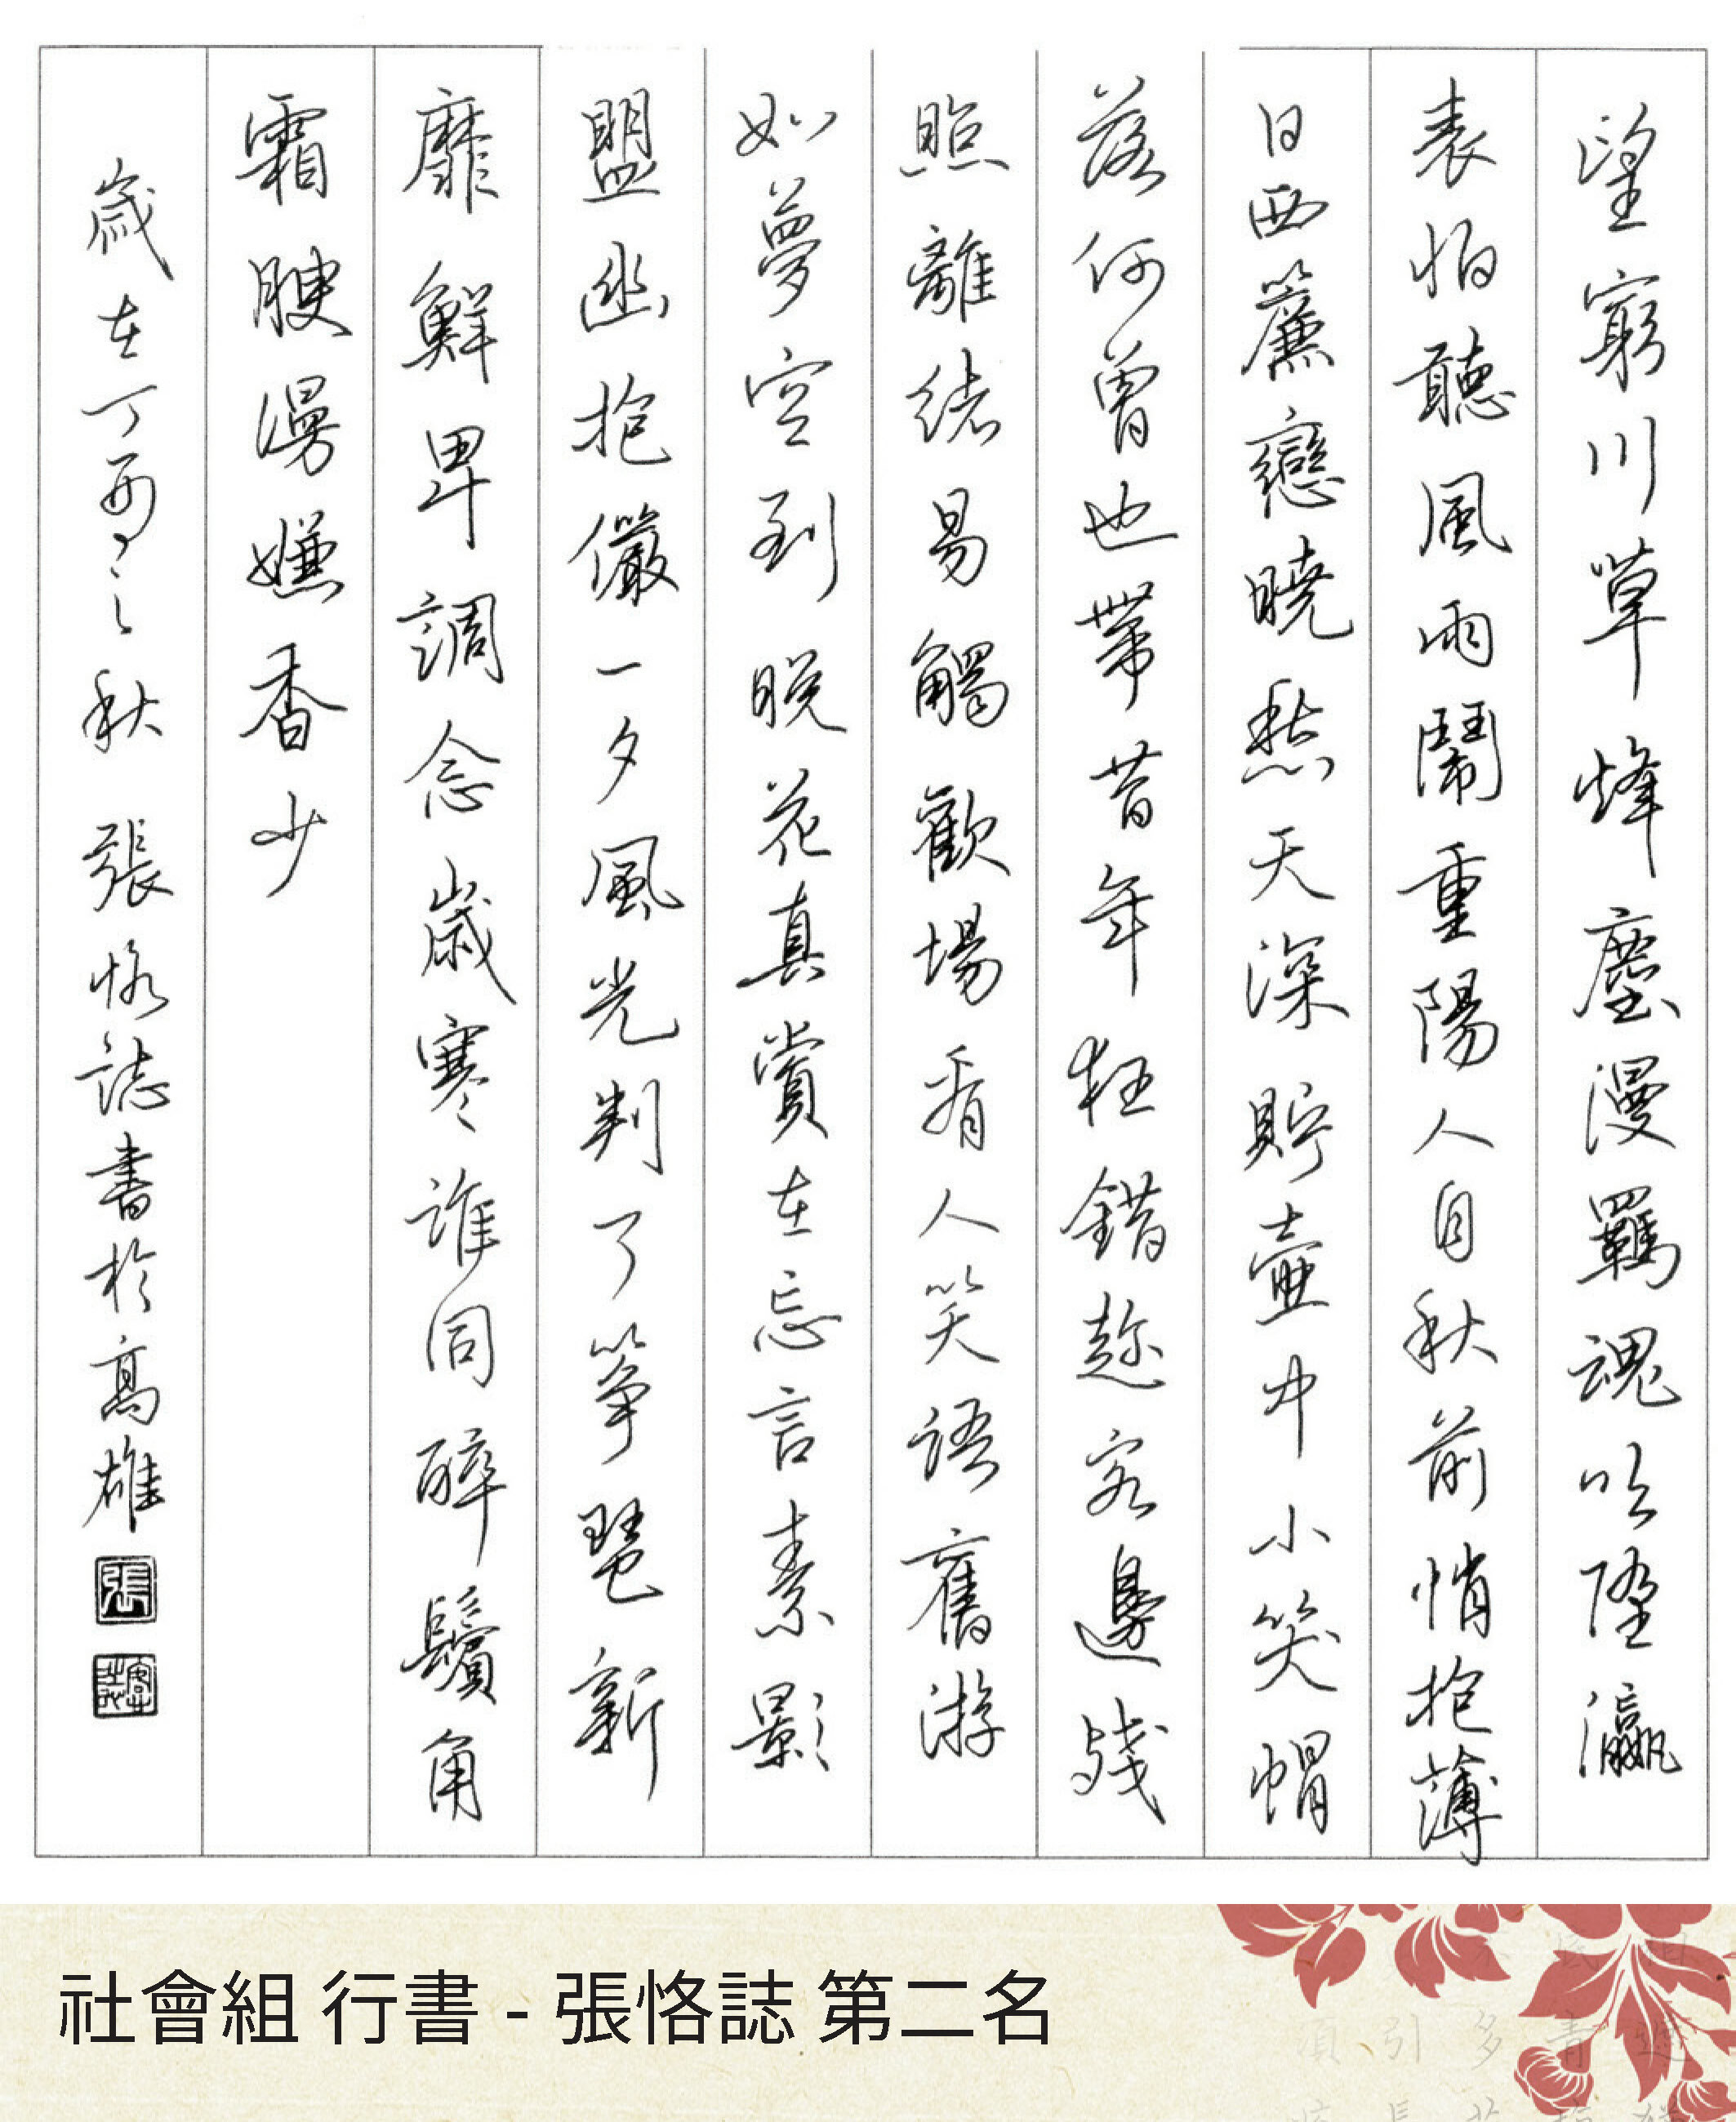 望窮川草烽塵漫羈魂吹墮瀛
表怕聽風雨鬧重陽人自秋前悄抱薄
日西簾戀曉愁天深貯壺中小笑帽
落何曾也帶昔年狂錯趁客邊殘
照離緒易觸歡場看人笑語舊游
如夢空到晚花真賞在忘言素影
盟幽抱儼一夕風光判了箏琶新
靡鮮卑調念歲寒誰同醉鬢角
霜腴漫嫌香少
歲在丁酉之秋 張恪誌書於高雄
社會組 行書 - 張恪誌 第二名